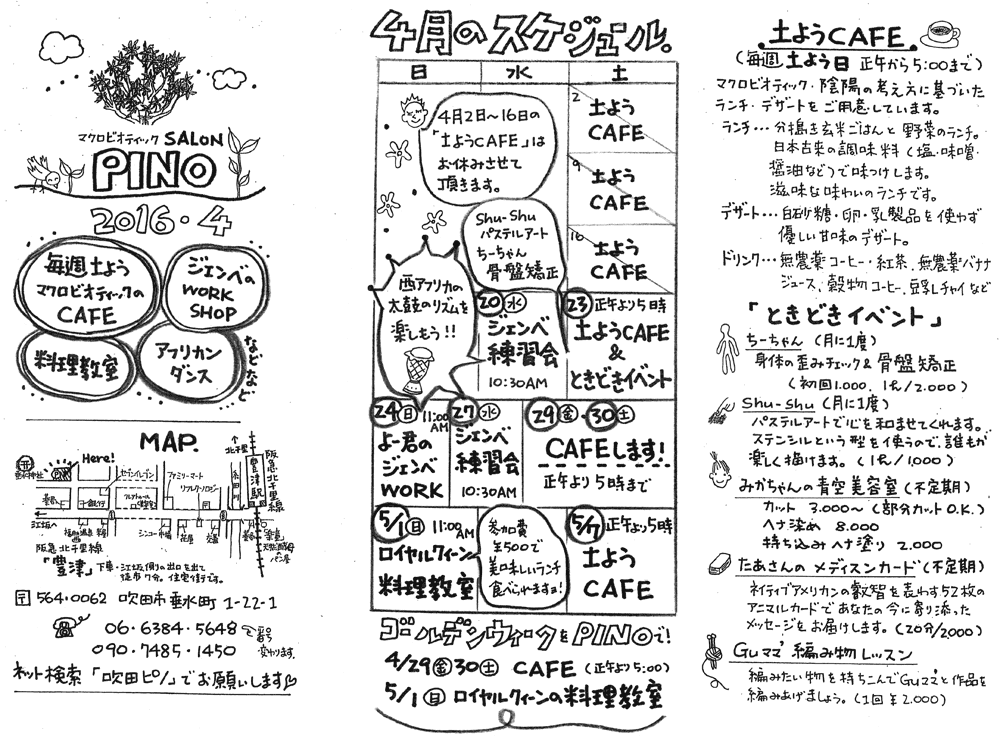 マクロビオティック SALON
PINO
2016・4
毎週土よう
マクロビオティックの
CAFE
ジェンベの
WORK
SHOP
料理教室
アフリカン
ダンス
などなど
MAP.
Here!
北千里
阪急北千里線
豊津駅
セブンイレブン
ファミリーマート
江坂へ
阪急北千里線
「豊津」下車・江坂側の出口を出て
徒歩7分。住宅街です。
〒564・0062 吹田市垂水町1-22-1
06・6384・5648
090・7485・1450
ネット検索「吹田ピノ」でお願いします
4月のスケジュール.
日 水 土
4月2日〜16日の
「土ようCAFE」は
お休みさせて
頂きます。
2
土よう
CAFE
9
土よう
CAFE
16
土よう
CAFE
Shu-Shu
パステルアート
ちーちゃん
骨盤矯正
西アフリカの
太鼓のリズムを
楽しもう!!
20 水
ジェンベ
練習会
10:30AM
23 正午より5時
土ようCAFE
&
ときどきイベント
24 日 11:00AM
よー君の
ジェンベ
WORK
27 水
ジェンベ
練習会
10:30AM
29 金・30 土
CAFEします!
正午より5時まで
5/1 日 11:00AM
ロイヤルクィーン
料理教室
参加費
¥500で
美味しいランチ
食べられますョ!
5/7 正午より5時
土よう
CAFE
ゴールデンウィークをPINOで!
4/29金30土 CAFE (正午より5:00)
5/1日 ロイヤルクィーンの料理教室
土ようCAFE
(毎週土よう日 正午から5:00まで)
マクロビオティック・陰陽の考え方に基づいた
ランチ・デザートをご用意しています。
ランチ・・・分搗き玄米ごはんと野菜のランチ。
日本古来の調味料(塩・味噌・
醤油など)で味つけします。
滋味な味わいのランチです。
デザート・・・白砂糖・卵・乳製品を使わず
優しい甘味のデザート。
ドリンク・・・無農薬コーヒー・紅茶、無農薬バナナ
ジュース、穀物コーヒー、豆乳チャイなど
「ときどきイベント」
ちーちゃん (月に1度)
身体の歪みチェック&骨盤矯正
(初回1.000、1h/2.000)
Shu-Shu (月に1度)
パステルアートで心を和ませてくれます。
ステンシルという型を使うので、誰もが
楽しく描けます。(1h/1,000)
みかちゃんの青空美容室(不定期)
カット 3.000〜(部分カットO.K.)
ヘナ染め 8.000
持ち込みヘナ塗り 2.000
たあさんのメディスンカード(不定期)
ネイティブアメリカンの叡智を表わす52枚の
アニマルカードであなたの今に寄り添った
メッセージをお届けします。(20分/2000)
Guママ 編み物レッスン
編みたい物を持ちこんでGuママと作品を
編みあげましょう。(1回¥2.000)